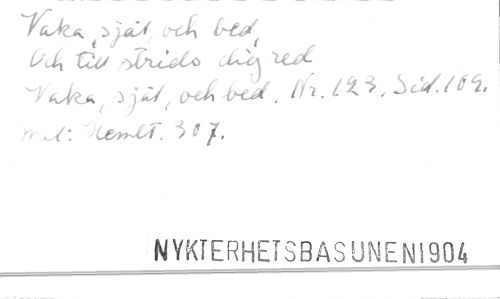 Vaka, själ, och bed,
Och till strids dig red
Vaka, själ, och bed. Nr. 123. Sid. 109.
Mel: Hemlt. 307.
NYKTERHETSBASUNEN1904